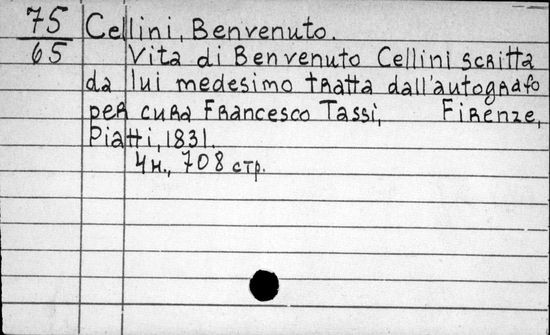 75 Cellini, Benvenuto.
65 Vita di Benvenuto Cellini scritta
da lui medesimo tratta dall'autografo
per cura Francesco Tassi, Firenze,
Piatti, 1831.
4н., 708 стр.